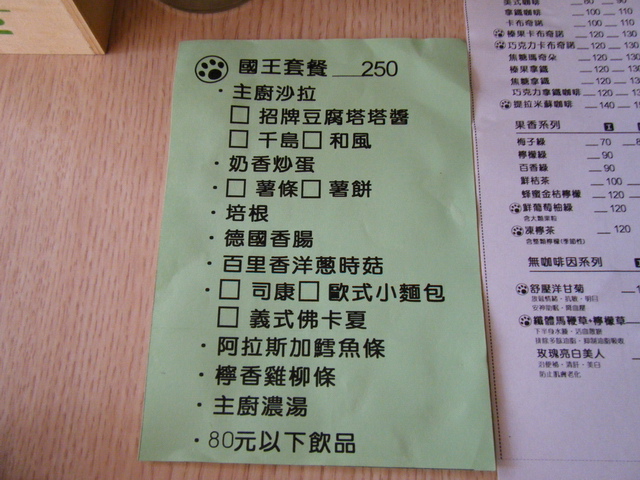 國王套餐 250
·主廚沙拉
□ 招牌豆腐塔塔醬
□ 千島□ 和風
·奶香炒蛋
·□ 薯條□ 薯餅
·培根
·德國香腸
·百里香洋蔥時菇
·□ 司康□ 歐式小麵包
□ 義式佛卡夏
·阿拉斯加鱈魚條
·檸香雞柳條
·主廚濃湯
·80元以下飲品
美式咖啡 80 90
拿鐵咖啡 100 110
卡布奇諾 100 110
榛果卡布奇諾 120 130
巧克力卡布奇諾 120 130
焦糖瑪奇朵 120 130
榛果拿鐵 120 130
焦糖拿鐵 120 130
巧克力拿鐵咖啡 120 130
提拉米蘇咖啡 140
果香系列
梅子綠 70
檸檬綠 90
百香綠 90
鮮桔茶 100
蜂蜜金桔檸檬 120
鮮葡萄柚綠 120
含大顆果粒
凍檸茶 120
含整顆檸檬(季節性)
無咖啡因系列
舒壓洋甘菊
纖體馬鞭草+檸檬草
玫瑰亮白美人
防止肌膚老化